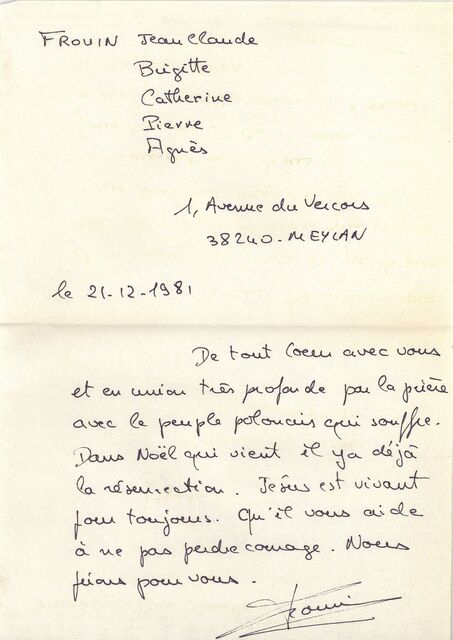 FROUIN Jean Claude
Brigitte
Catherine
Pierre
Agnès
1, Avenue du Vercors
38240 - MEYLAN
le 21-12-1981
De tout Coeur avec vous
et en union très profonde par la prière
avec le peuple polonais qui souffre.
Dans Noël qui vient il y a déjà
la résurrection. Jésus est vivant
pour toujours. Qu'il vous aide
à ne pas perdre courage. Nous
prions pour vous.
Frouin